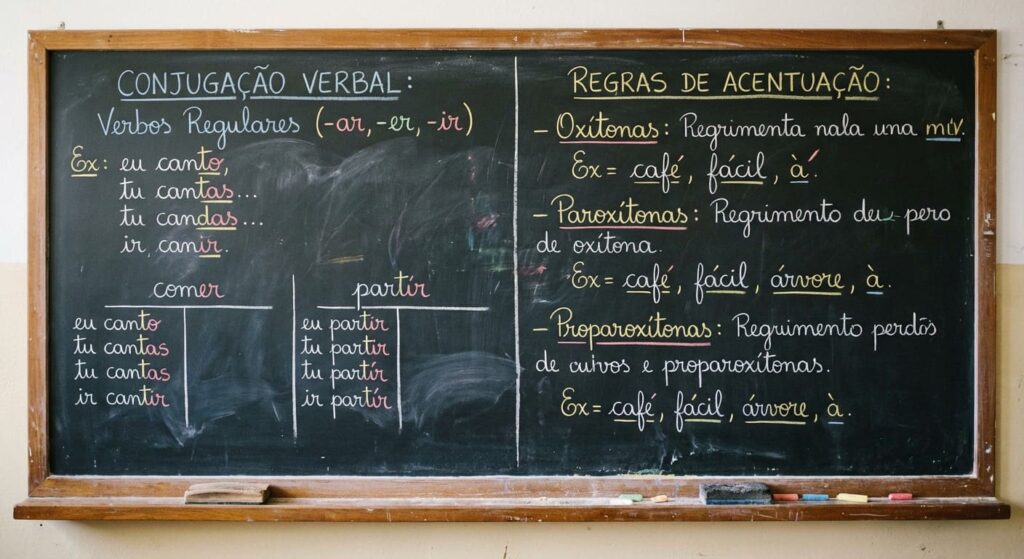 CONJUGAÇÃO VERBAL:
Verbos Regulares (-ar, -er, -ir)
Ex: eu canto,
tu cantas...
tu candas...
ir, canir.
comer
eu canto
tu cantas
tu cantas
ir cantir
partír
eu partir
tu partir
tu partír
ir partír
REGRAS DE ACENTUAÇÃO:
- Oxítonas: Regrimenta nala una
Ex = café, fácil, à.
- Paroxítonas: Regrimento deu pero
de oxítona.
Ex = café, fácil, árvore, à.
- Proparoxítonas: Reguimento perdôs
de cuivos e proparoxítonas.
Ex = café, fácil, árvore, à.